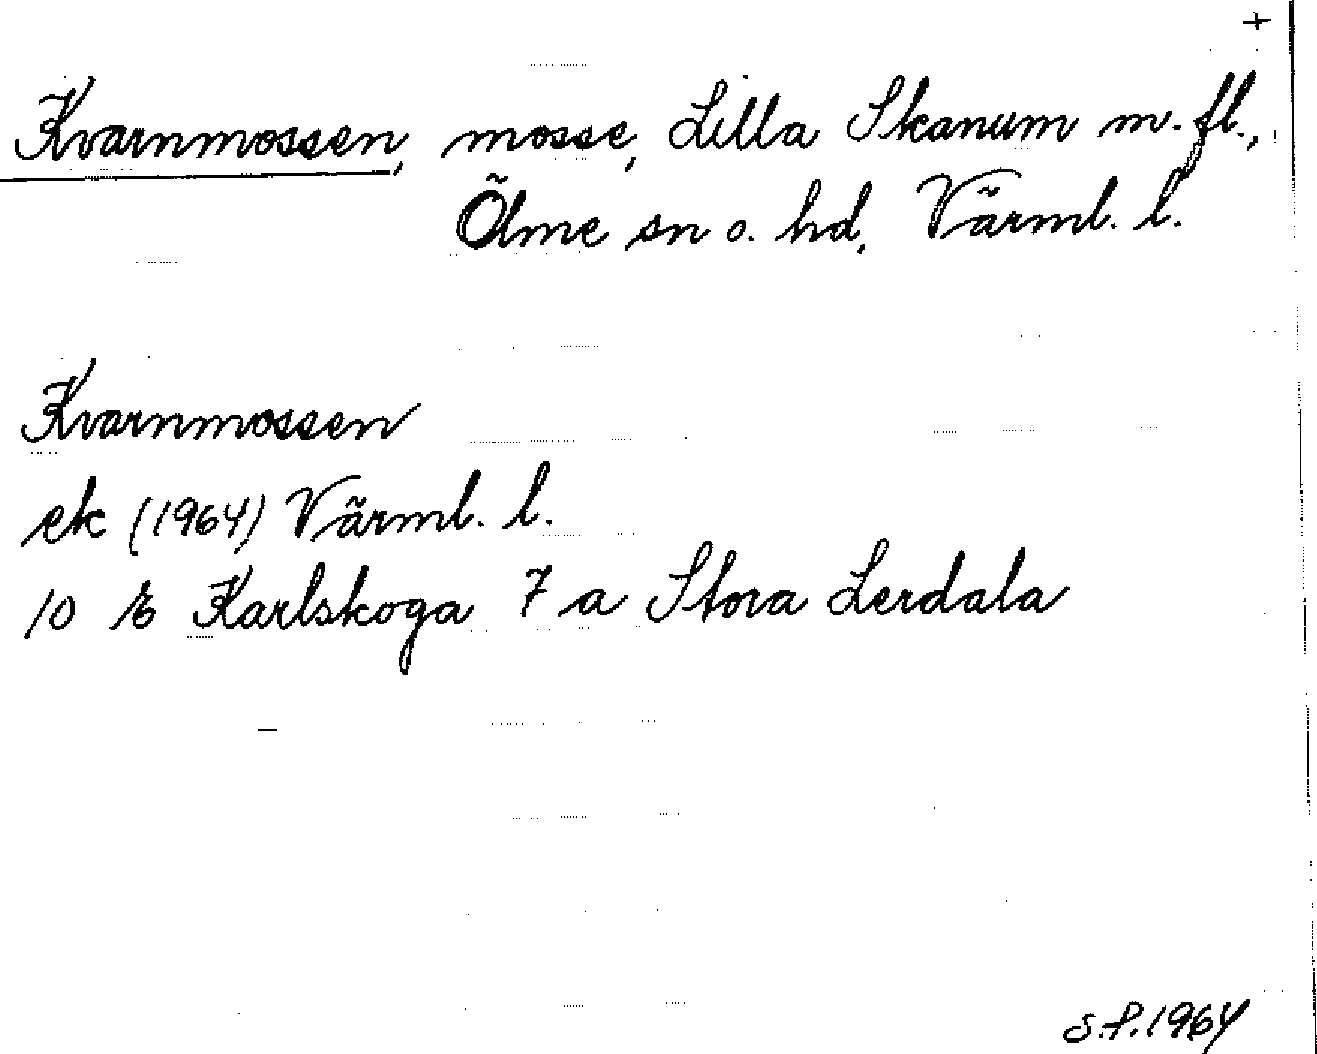 +
Kvarnmossen, mosse, Lilla Skanum m. fl.,
Ölme sn o. hd, Värml. l.
Kvarnmossen
ek (1964) Värml. l.
10 E Karlskoga 7 a Stora Lerdala
S.P. 1964